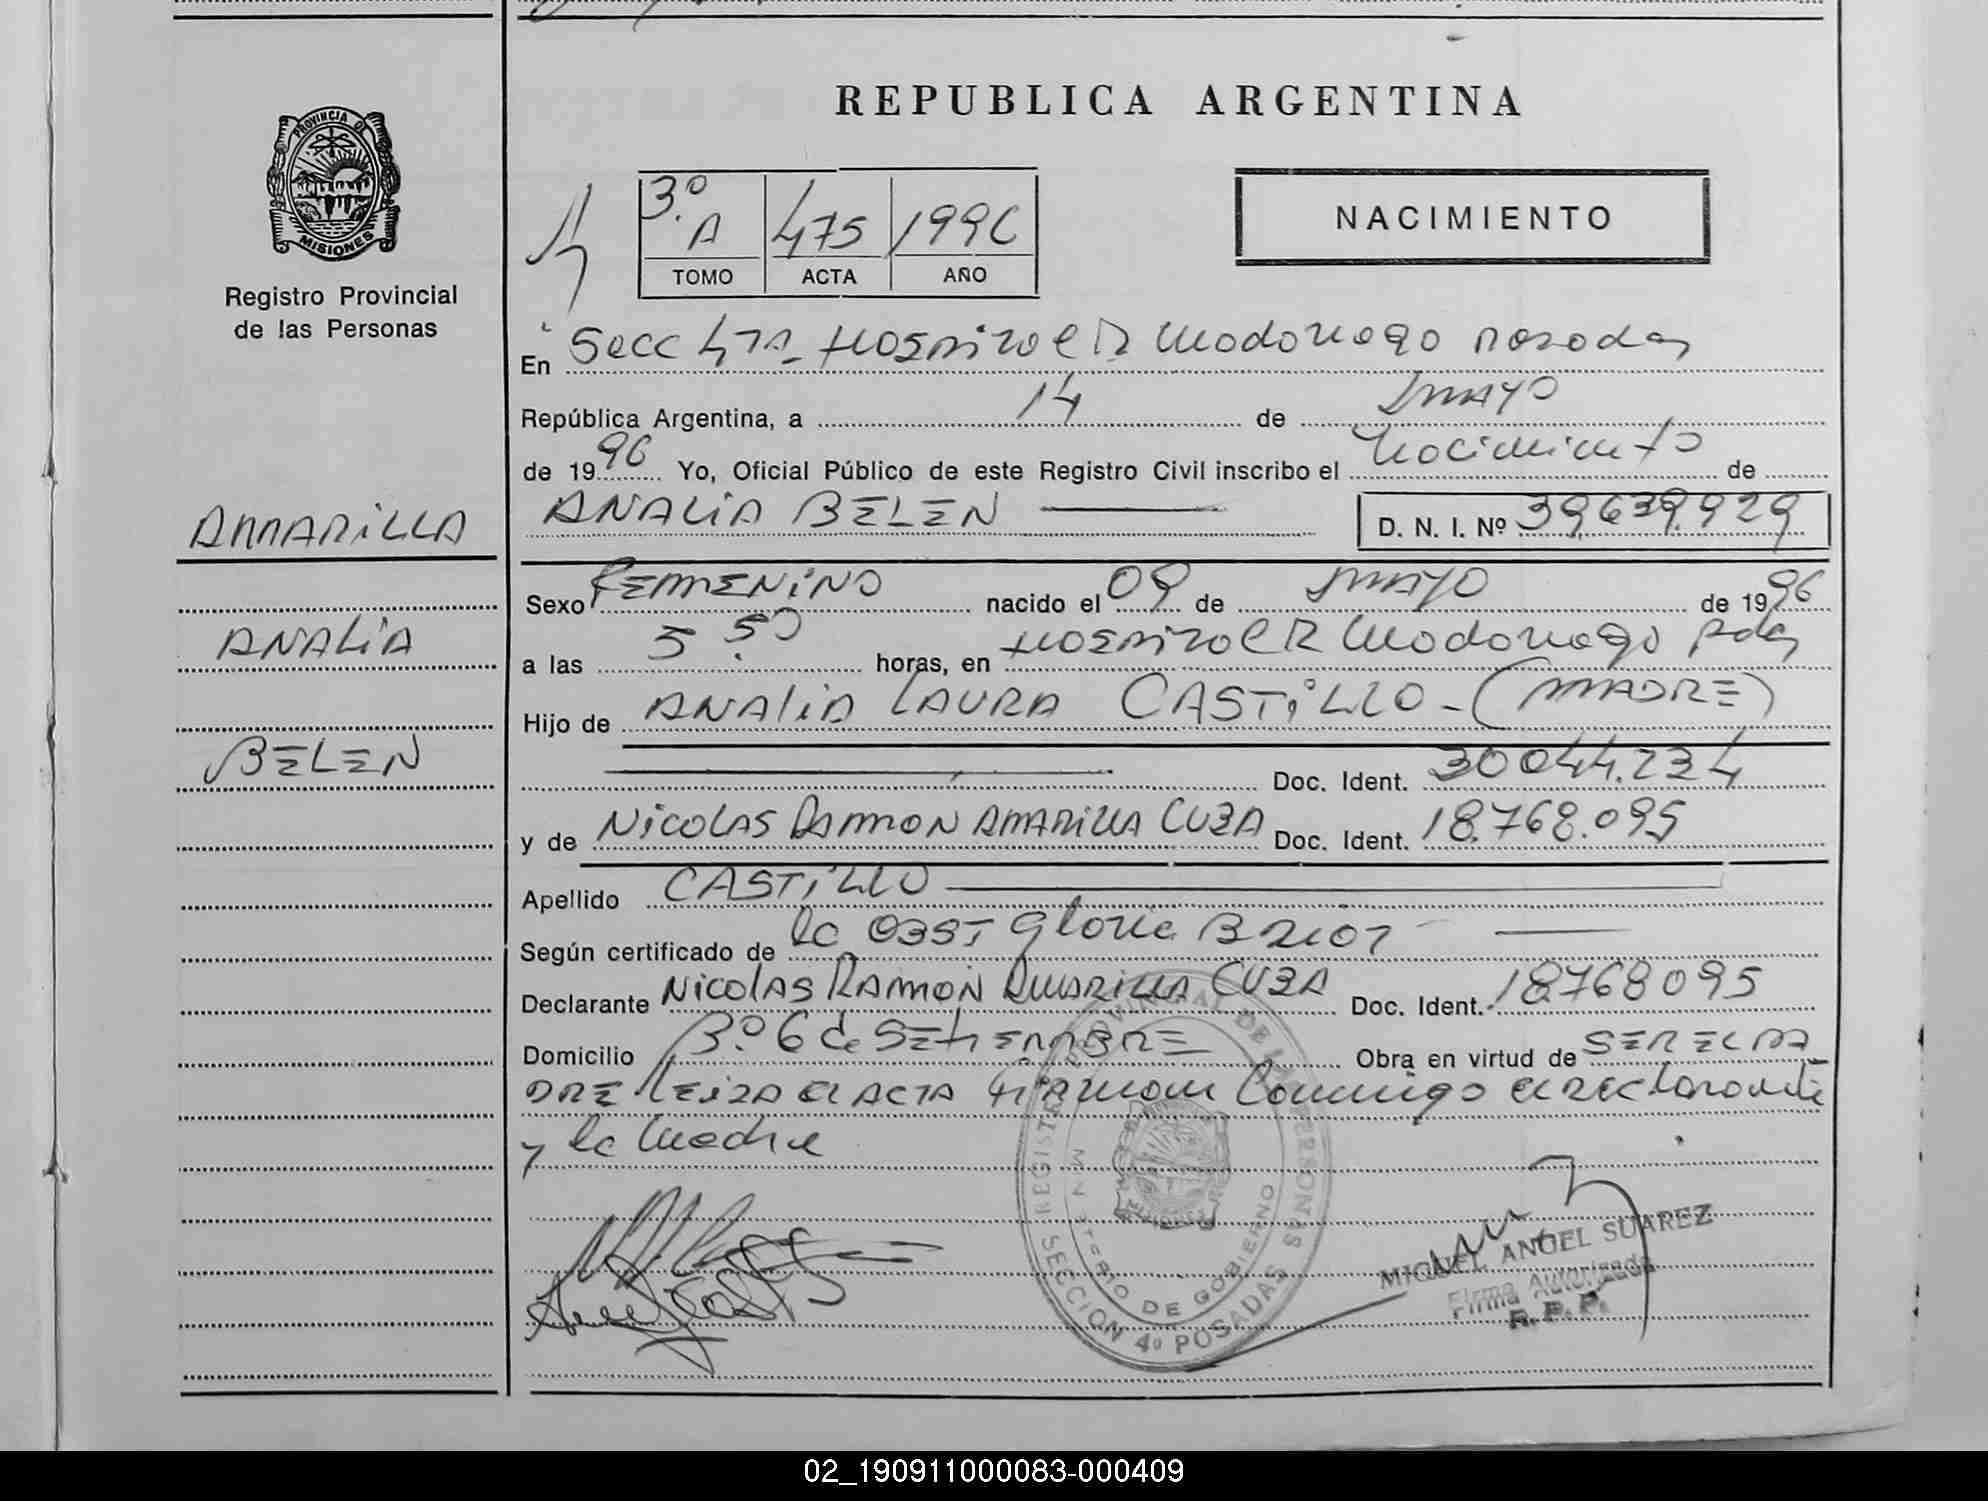 REPUBLICA ARGENTINA
PROVINCIA DE
MISIONES
Registro Provincial
de las Personas
3º A 475 1996
TOMO ACTA AÑO
NACIMIENTO
En Secc 4ta Hospital R Madariaga Posadas
República Argentina, a 14 de MAYO
de 1996 Yo, Oficial Público de este Registro Civil inscribo el Nacimiento de
ANALIA BELEN D. N. I. Nº 39.639.929
AMARILLA
ANALIA
BELEN
Sexo FEMENINO nacido el 09 de MAYO de 1996
a las 5.50 horas, en Hospital R Madariaga Pdas
Hijo de ANALIA LAURA CASTILLO - (MADRE)
Doc. Ident. 30044.234
y de NICOLAS RAMON AMARILLA CUBA Doc. Ident. 18.768.095
Apellido CASTILLO
Según certificado de la OBST Gloria
Declarante NICOLAS RAMON AMARILLA CUBA Doc. Ident. 18768095
Domicilio Bº 6 de SETIEMBRE Obra en virtud de SER EL PA
DRE LEIDA EL ACTA FIRMAN Conmigo el declarante
y la Madre
REGISTRO PROVINCIAL DE LAS PERSONAS
SECCION 4º POSADAS
MINISTERIO DE GOBIERNO
MIGUEL ANGEL SUAREZ
Firma Autorizada
R. P. P.
02_190911000083-000409